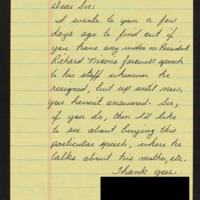 Dear Sir:
I wrote to you a few
days ago to find out if
you have any video on President
Richard Nixons farewell speech
to his staff whenever he
resigned, but up until now,
you havent answered. Sir,
if you do, then I'd like
to see about buying this
particular speech, where he
talks about his mother, etc.
Thank you.